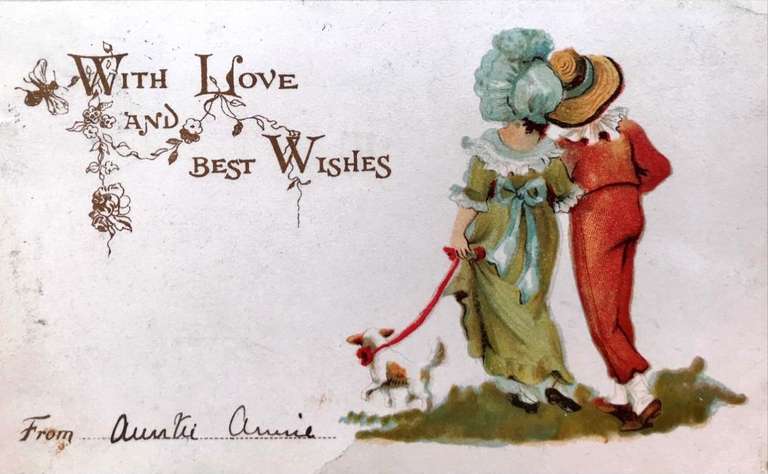 With Love
and
best Wishes
From Auntie Annie